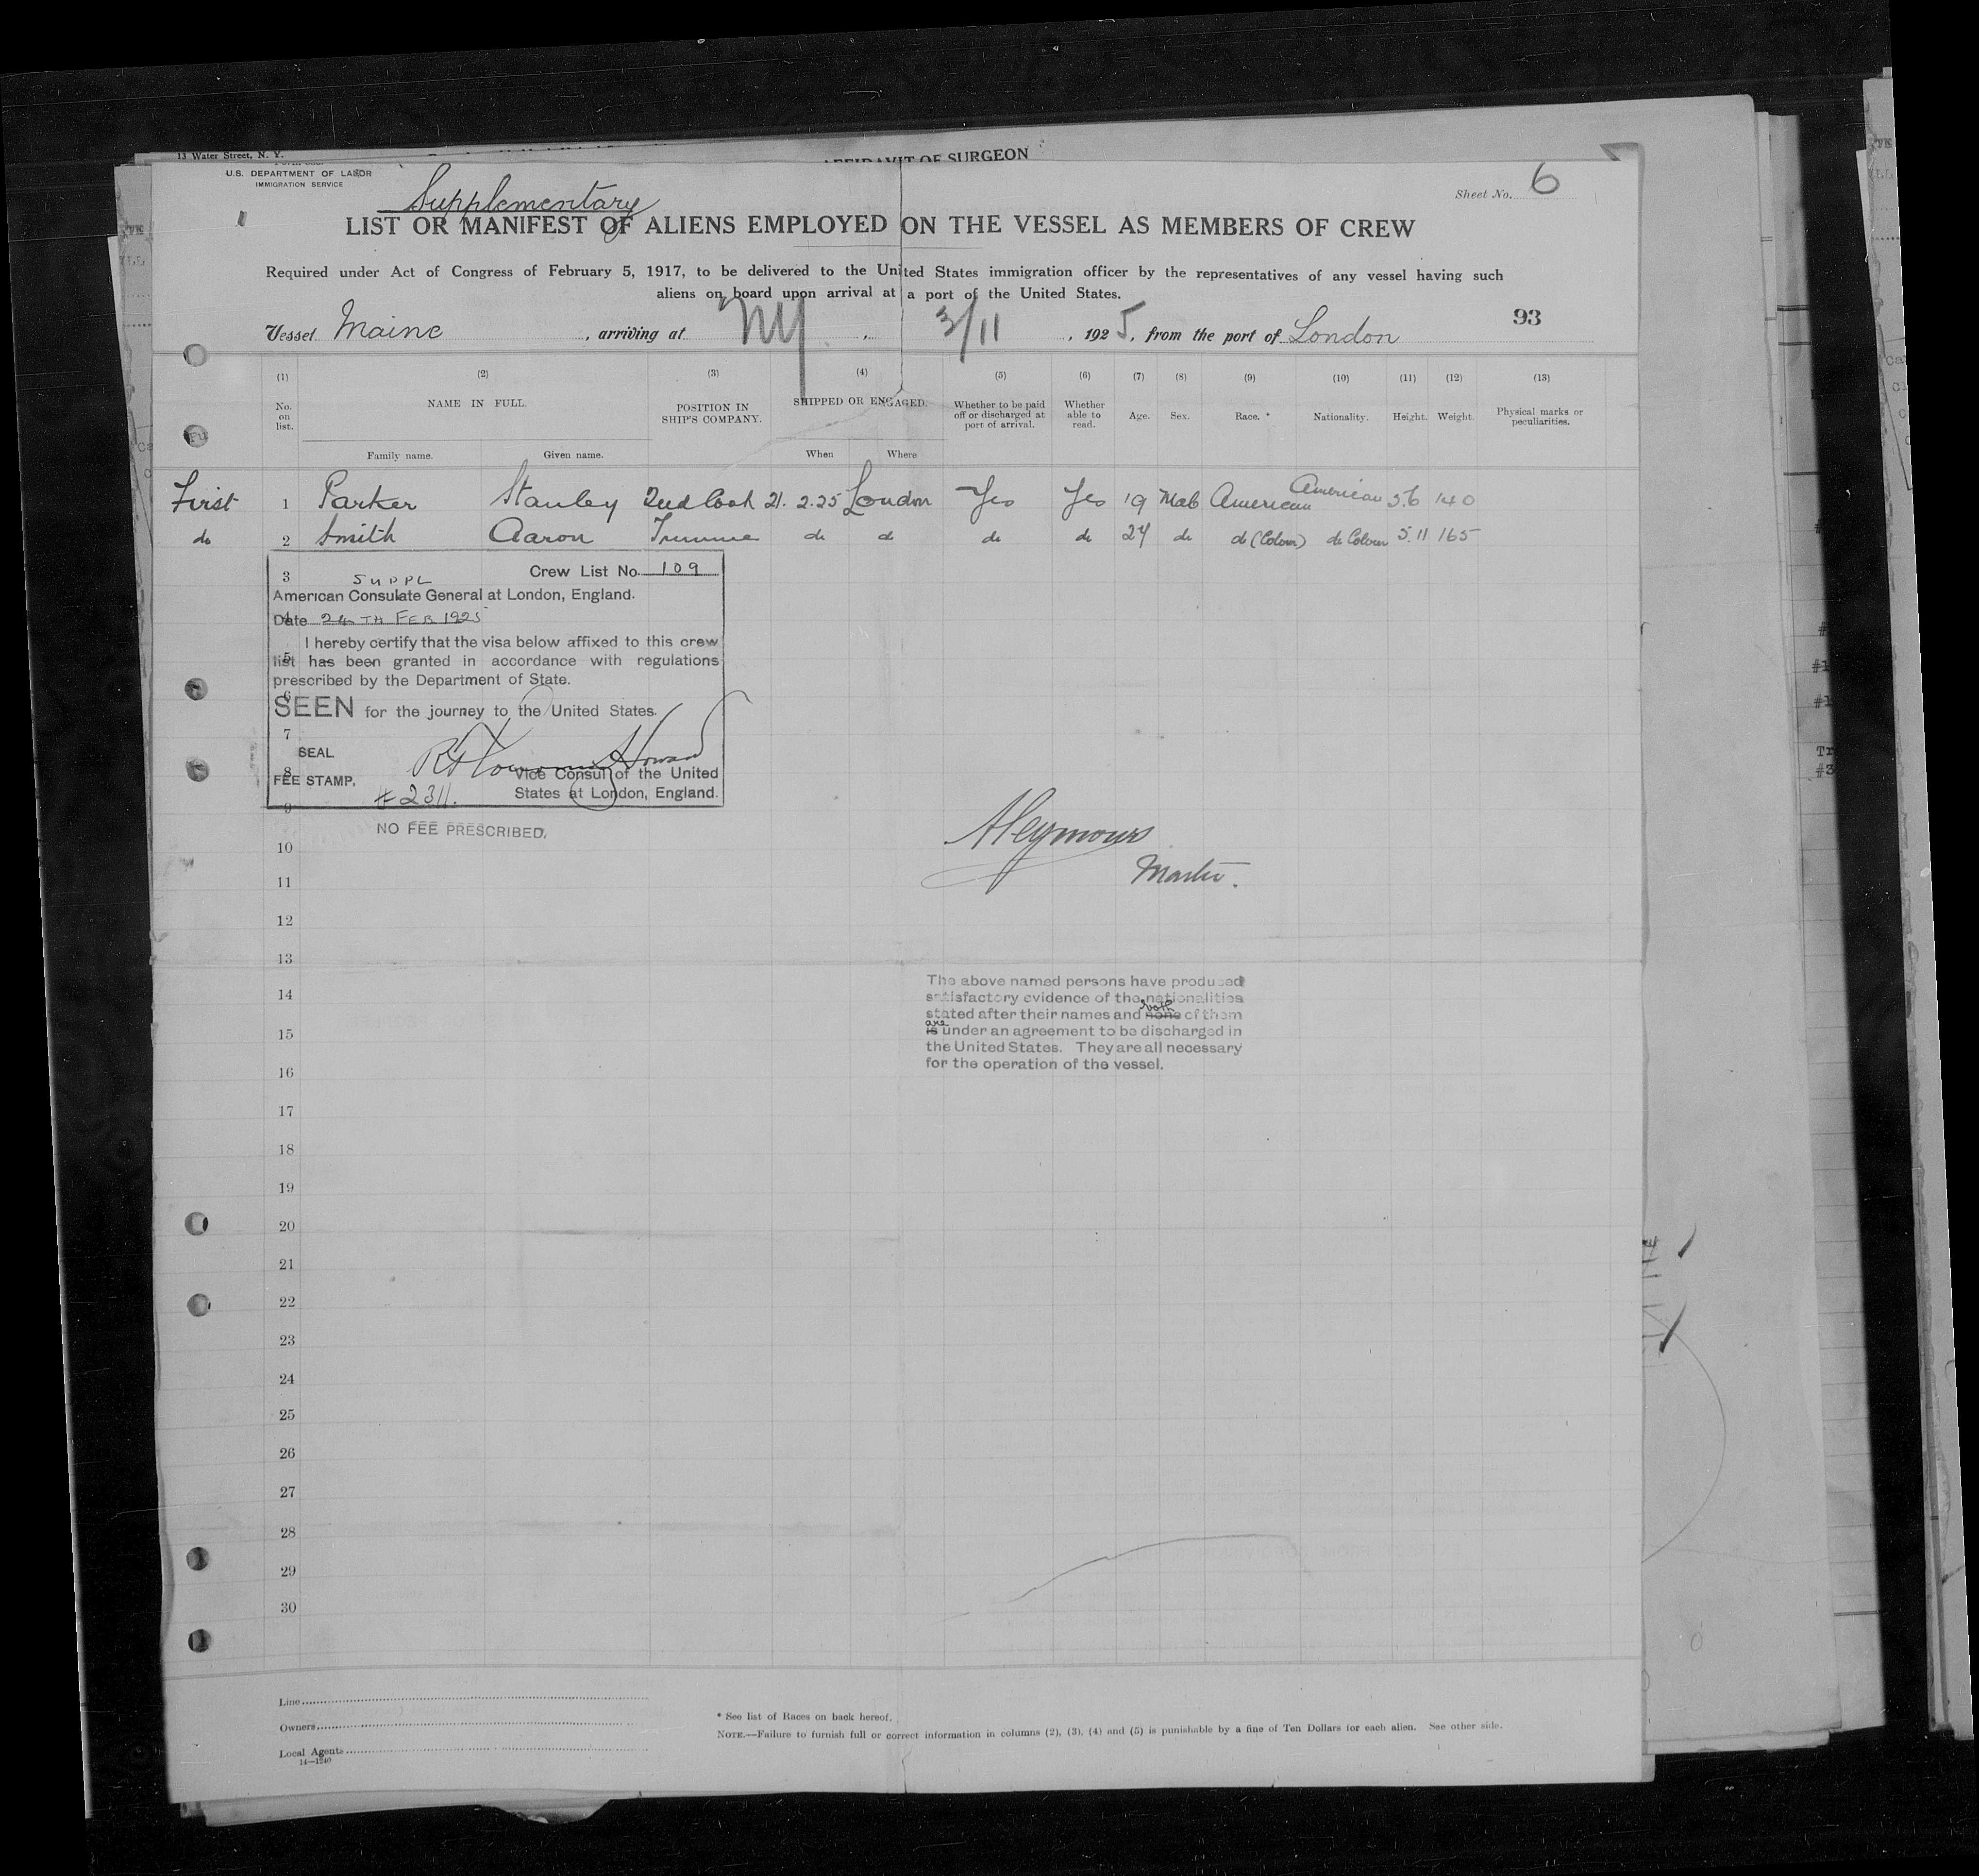 13 Water Street, N. Y.
AFFIDAVIT OF SURGEON
U.S. DEPARTMENT OF LABOR
IMMIGRATION SERVICE
Sheet No. 6
Supplementary
LIST OR MANIFEST OF ALIENS EMPLOYED ON THE VESSEL AS MEMBERS OF CREW
Required under Act of Congress of February 5, 1917, to be delivered to the United States immigration officer by the representatives of any vessel having such
aliens on board upon arrival at a port of the United States.
93
Vessel Maine, arriving at NY, 3/11, 1925, from the port of London
(1) (2) (3) (4) (5) (6) (7) (8) (9) (10) (11) (12) (13)
No. on list. NAME IN FULL. POSITION IN SHIP'S COMPANY. SHIPPED OR ENGAGED. Whether to be paid off or discharged at port of arrival. Whether able to read. Age. Sex. Race. * Nationality. Height. Weight. Physical marks or peculiarities.
Family name. Given name. When Where
First 1 Parker Stanley 2nd Cook 21. 2.25 London Yes Yes 19 Male American American 5.6 140
do 2 Smith Aaron Trimmer do do do do 24 do do (Colour) do Colour 5.11 165
3 SUPPL Crew List No. 109
American Consulate General at London, England.
4
Date 24TH FEB 1925
I hereby certify that the visa below affixed to this crew
5
list has been granted in accordance with regulations
prescribed by the Department of State.
6
SEEN for the journey to the United States.
7
SEAL
8
FEE STAMP. Vice Consul of the United
#2311. States at London, England.
9
NO FEE PRESCRIBED.
10
Master.
11
12
13
The above named persons have produced
14
satisfactory evidence of the nationalities
both
stated after their names and none of them
are
15
is under an agreement to be discharged in
the United States. They are all necessary
16
for the operation of the vessel.
17
18
19
20
21
22
23
24
25
26
27
28
29
30
Line
Owners
Local Agents
14—1240
* See list of Races on back hereof.
NOTE.—Failure to furnish full or correct information in columns (2), (3), (4) and (5) is punishable by a fine of Ten Dollars for each alien. See other side.